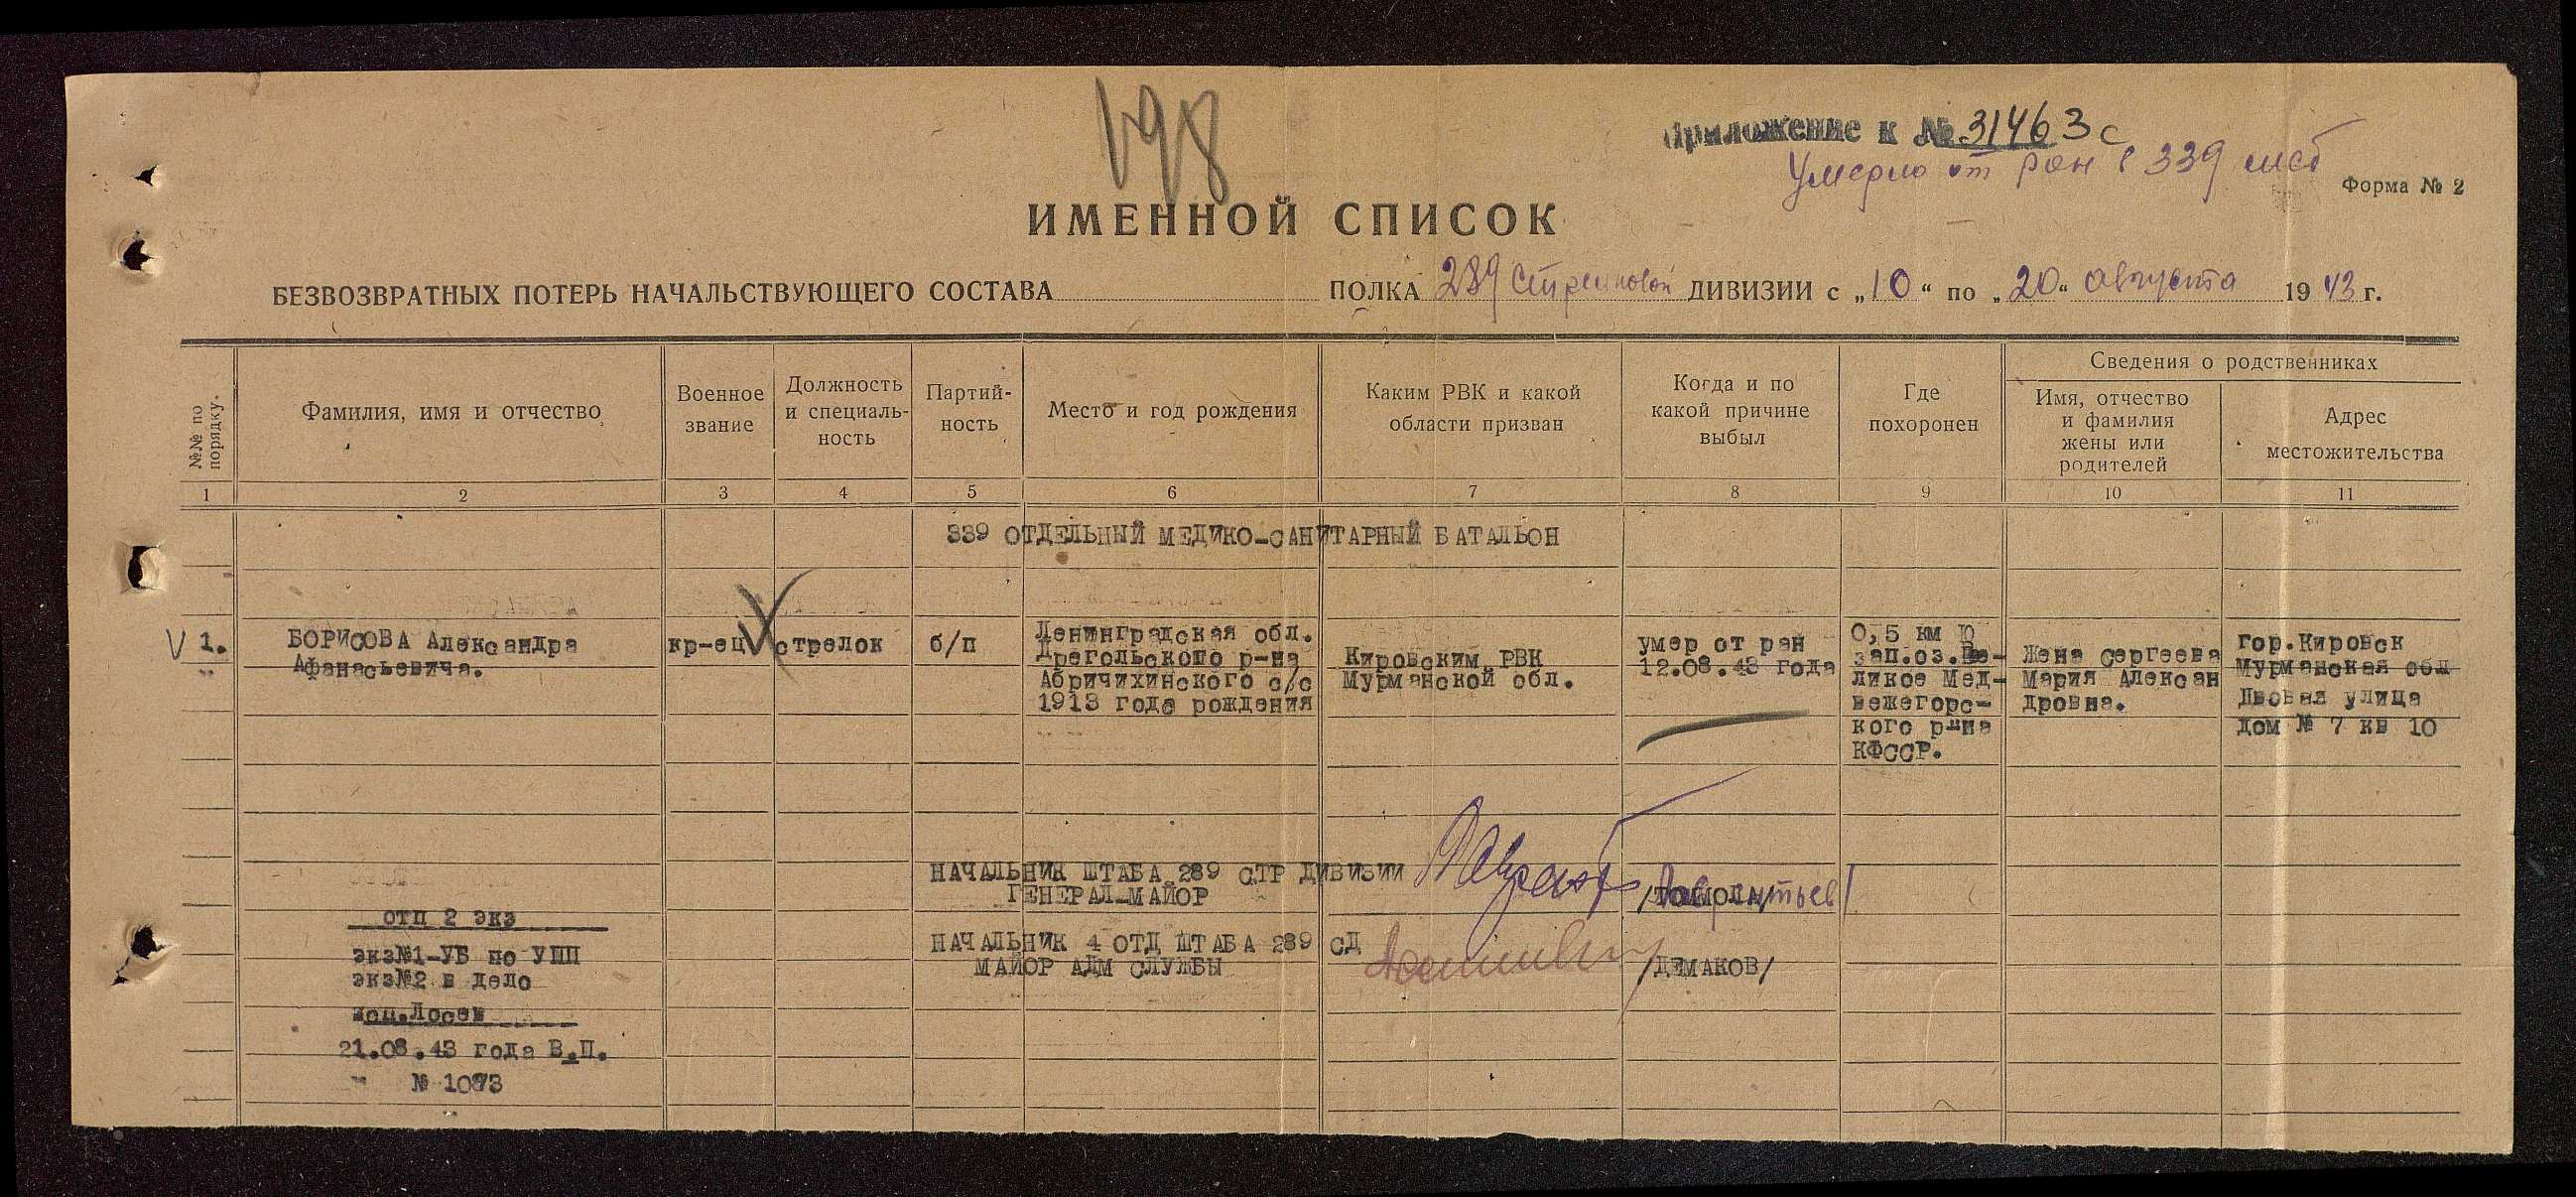 198
Приложение к № 31463с
Умерло от ран в 339 мсб
Форма № 2
ИМЕННОЙ СПИСОК
БЕЗВОЗВРАТНЫХ ПОТЕРЬ НАЧАЛЬСТВУЮЩЕГО СОСТАВА ПОЛКА 289 Стрелковой ДИВИЗИИ с „10“ по „20“ августа 1943 г.
№№ по порядку.
Фамилия, имя и отчество
Военное звание
Должность и специаль-ность
Партий-ность
Место и год рождения
Каким РВК и какой области призван
Когда и по какой причине выбыл
Где похоронен
Сведения о родственниках
Имя, отчество и фамилия жены или родителей
Адрес местожительства
1 2 3 4 5 6 7 8 9 10 11
339 ОТДЕЛЬНЫЙ МЕДИКО-САНИТАРНЫЙ БАТАЛЬОН
V 1.
БОРИСОВА Александра
Афанасьевича.
кр-ец
стрелок
б/п
Ленинградская обл.
Дрегольского р-на
Абричихинского с/с
1913 года рождения
Кировским РВК
Мурманской обл.
умер от ран
12.08.43 года
0,5 км Ю
зап.оз.Ве-
ликое Мед-
вежегорс-
кого р-на
КФССР.
Жена Сергеева
Мария Алексан
дровна.
гор.Кировск
Мурманская обл
улица
дом № 7 кв 10
НАЧАЛЬНИК ШТАБА 289 СТР ДИВИЗИИ
ГЕНЕРАЛ-МАЙОР
/ТОММОЛА/
НАЧАЛЬНИК 4 ОТД ШТАБА 289 СД
МАЙОР АДМ СЛУЖБЫ
/ДЕМАКОВ/
отп 2 экз
экз№1-УБ по УПП
экз№2 в дело
21.08.43 года В.П.
№ 1073